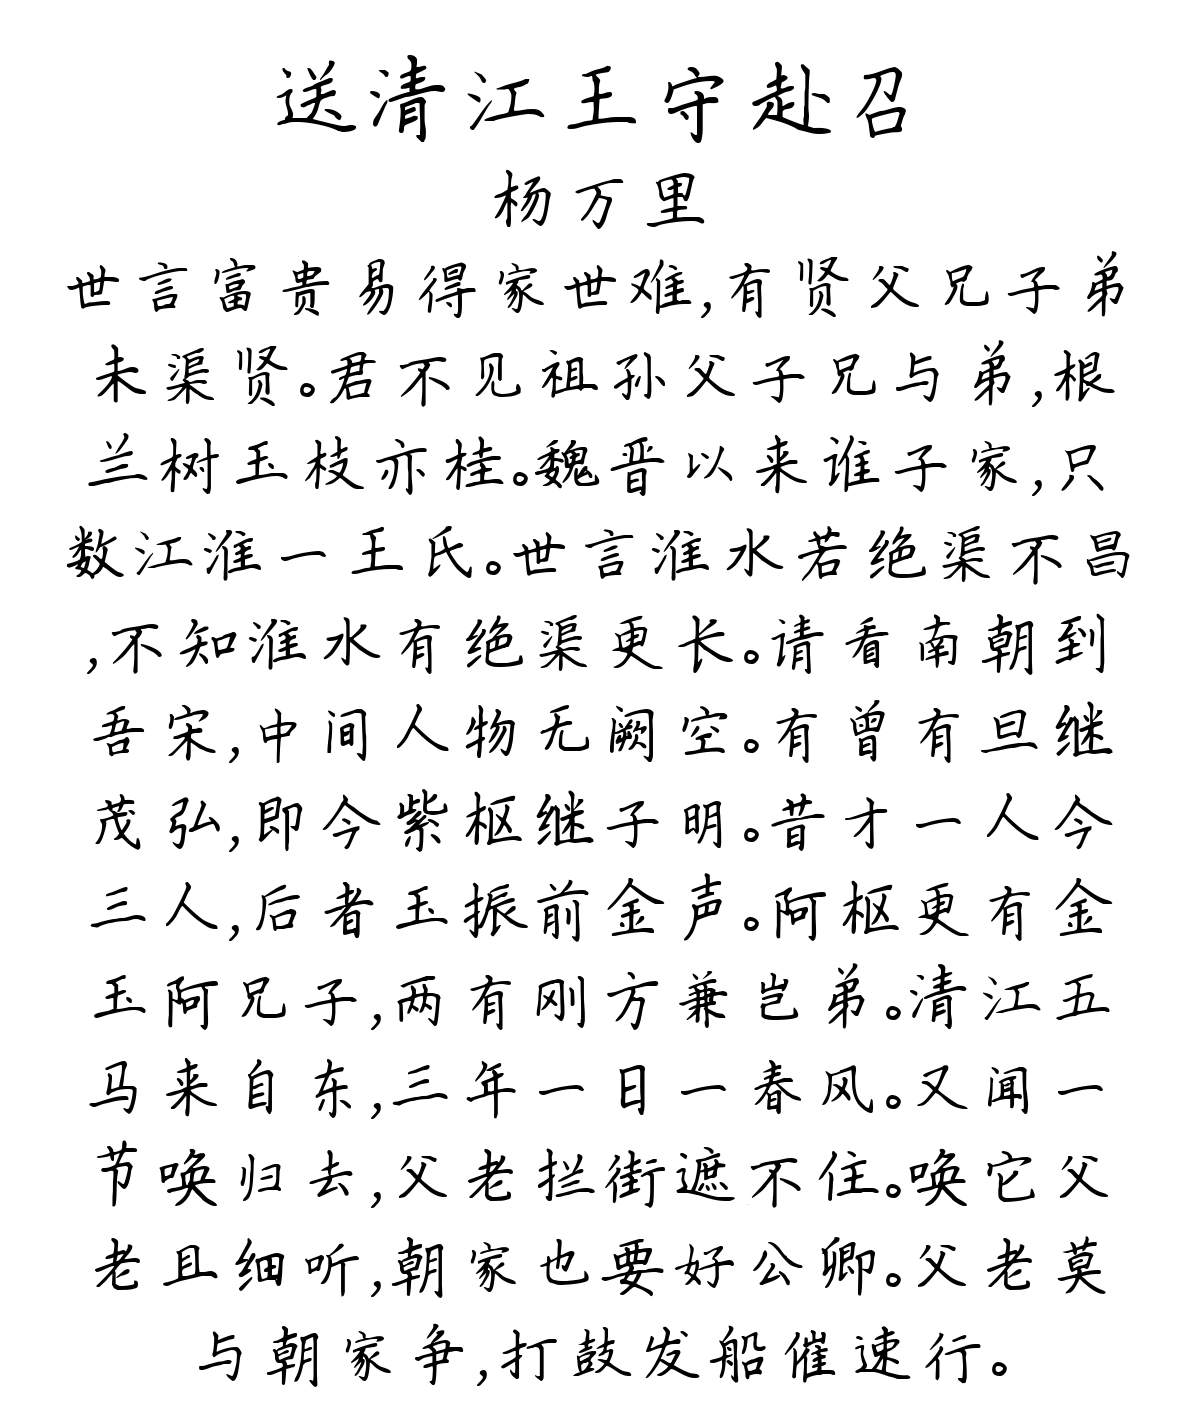 送清江王守赴召
杨万里
世言富贵易得家世难,有贤父兄子弟
未渠贤。君不见祖孙父子兄与弟,根
兰树玉枝亦桂。魏晋以来谁子家,只
数江淮一王氏。世言淮水若绝渠不昌
,不知淮水有绝渠更长。请看南朝到
吾宋,中间人物无阙空。有曾有旦继
茂弘,即今紫枢继子明。昔才一人今
三人,后者玉振前金声。阿枢更有金
玉阿兄子,两有刚方兼岂弟。清江五
马来自东,三年一日一春风。又闻一
节唤归去,父老拦街遮不住。唤它父
老且细听,朝家也要好公卿。父老莫
与朝家争,打鼓发船催速行。